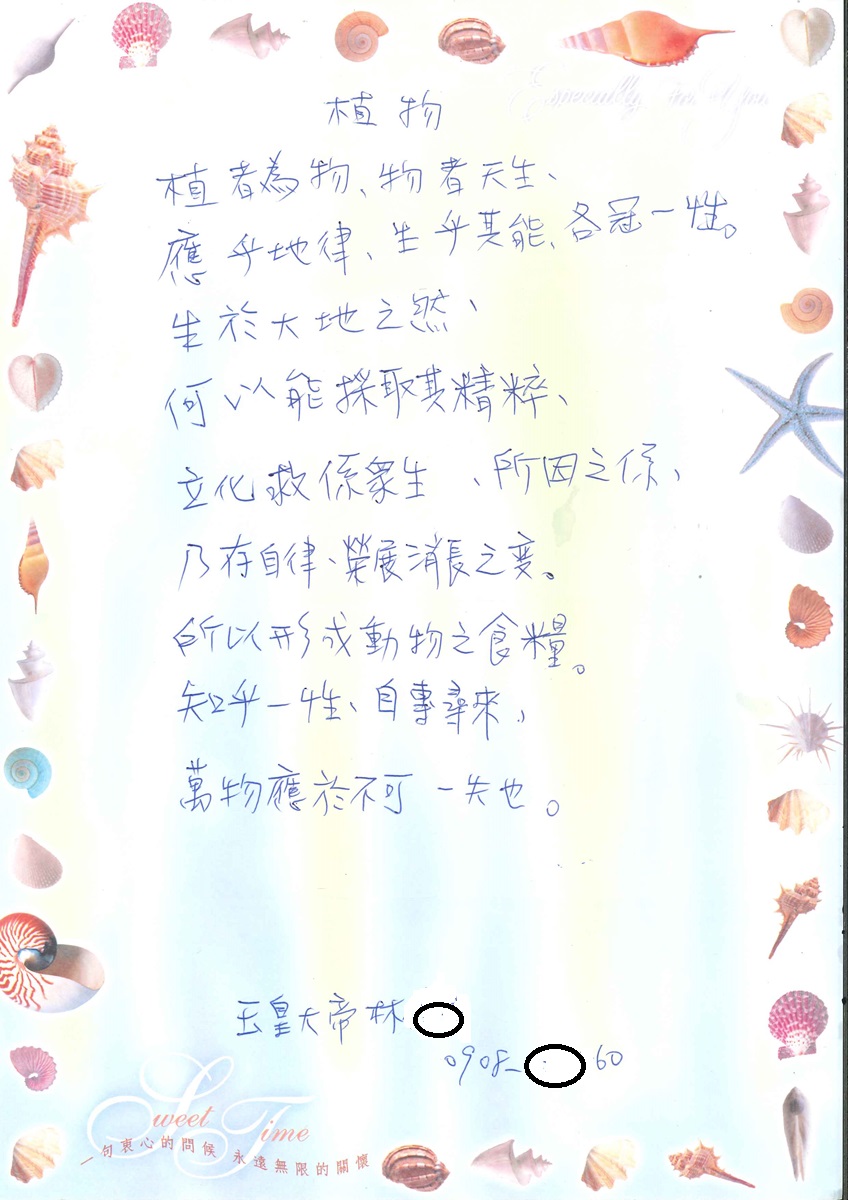 植物
植者為物、物者天生、
應乎地律、生乎其能、各冠一性。
生於大地之然、
何以能採取其精粹、
立化救係眾生、所因之係、
乃存自律、榮展消長之變。
所以形成動物之食糧。
知乎一性、自專尋來、
萬物應於不可一失也。
玉皇大帝林
0908- 60
Sweet Time
一句衷心的問候 永遠無限的關懷